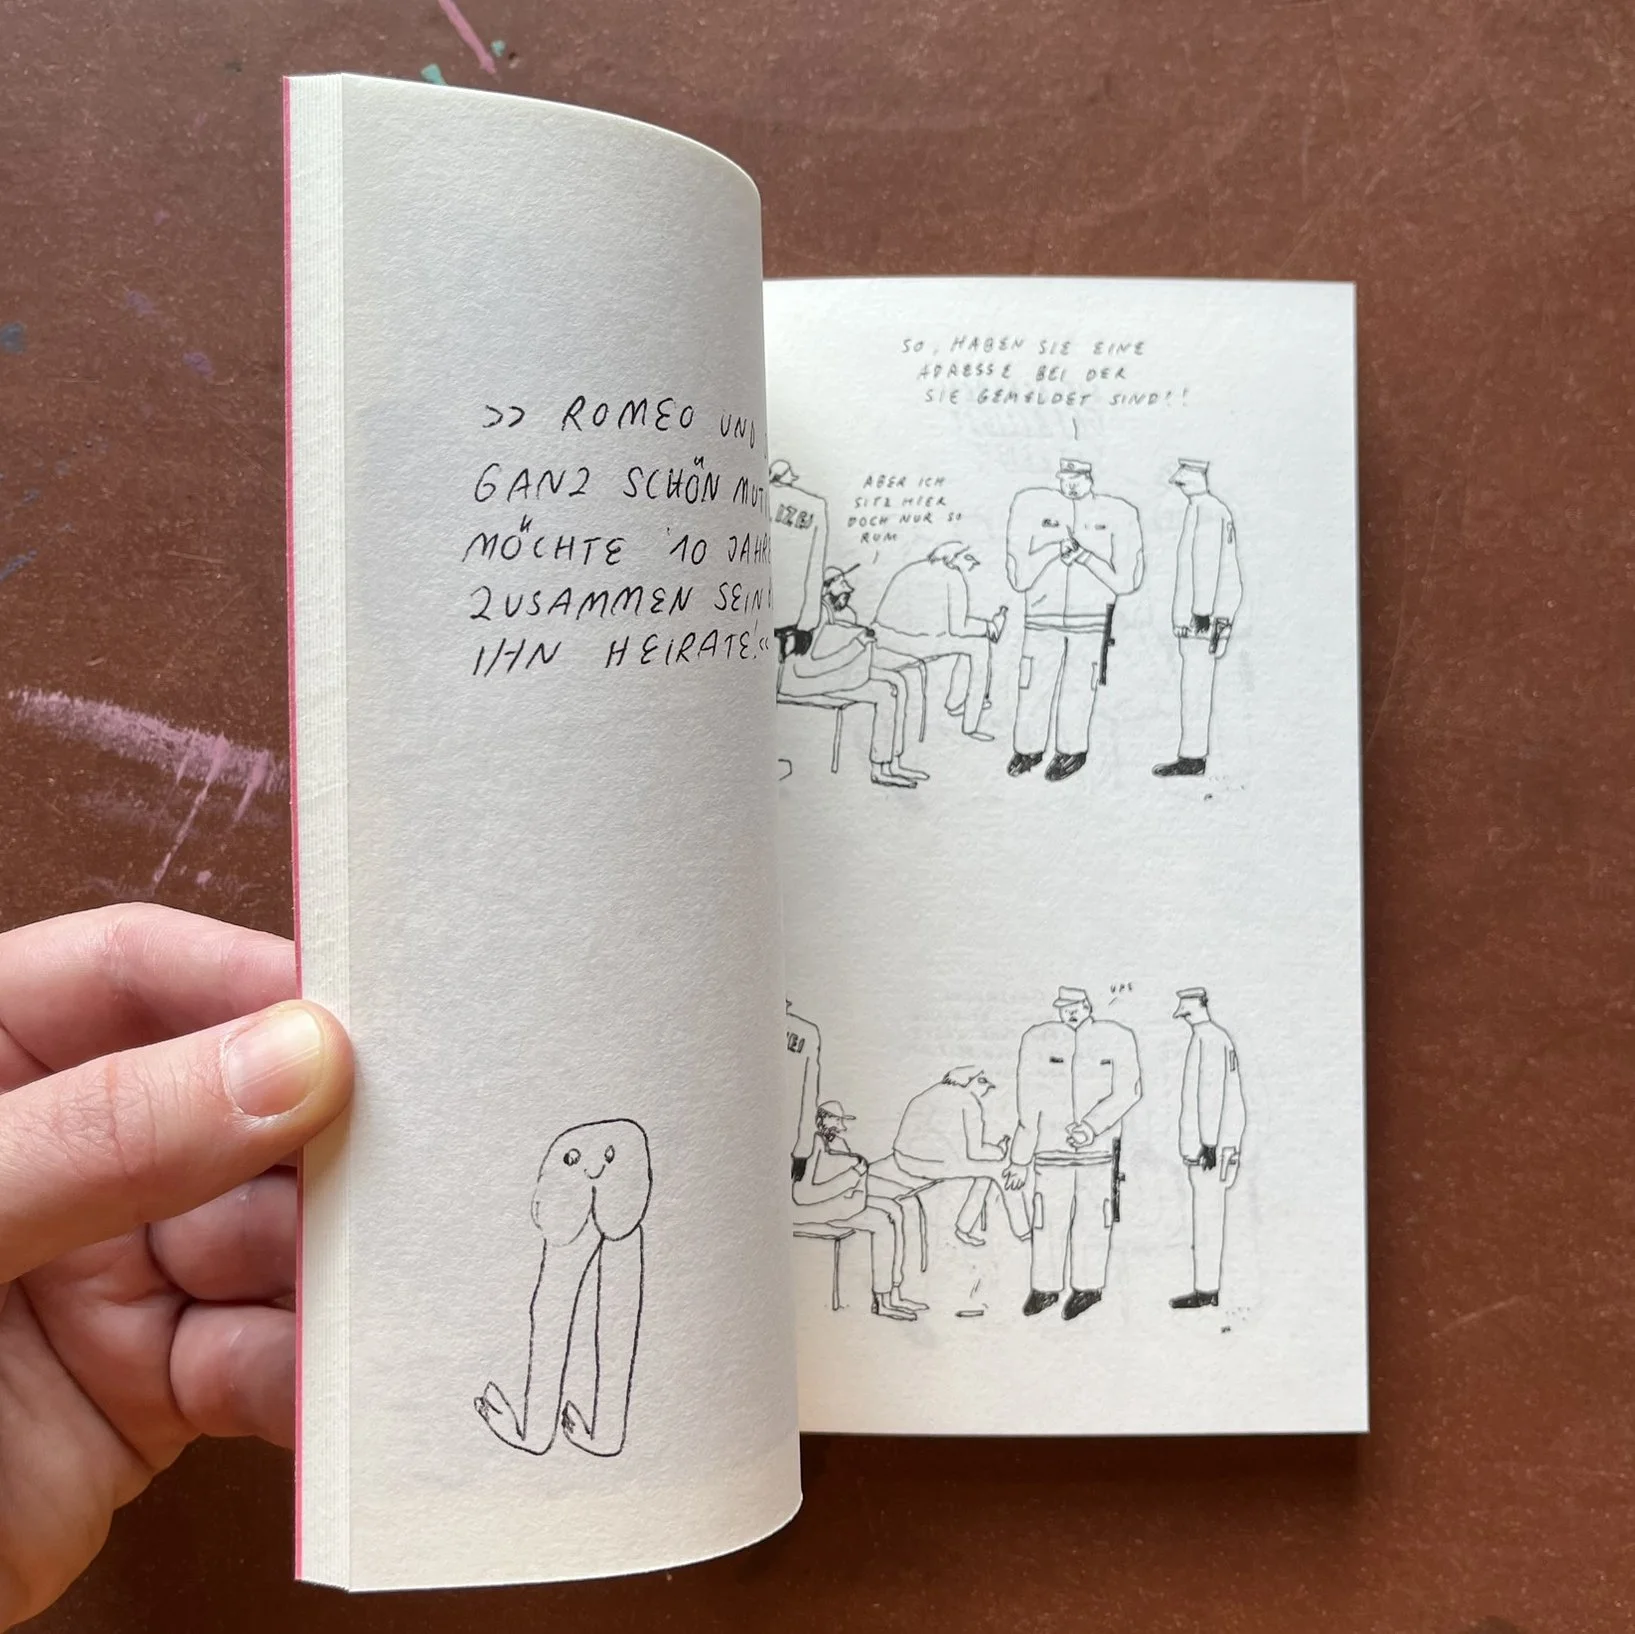 >> ROMEO UND
GANZ SCHÖN
MÖCHTE 10
ZUSAMMEN
IHN HEIRATE!<<
SO, HABEN SIE EINE
ADRESSE BEI DER
SIE GEMELDET SIND!!
IZEI
ABER ICH
SITZ HIER
DOCH NUR SO
RUM
UPS
ZEI